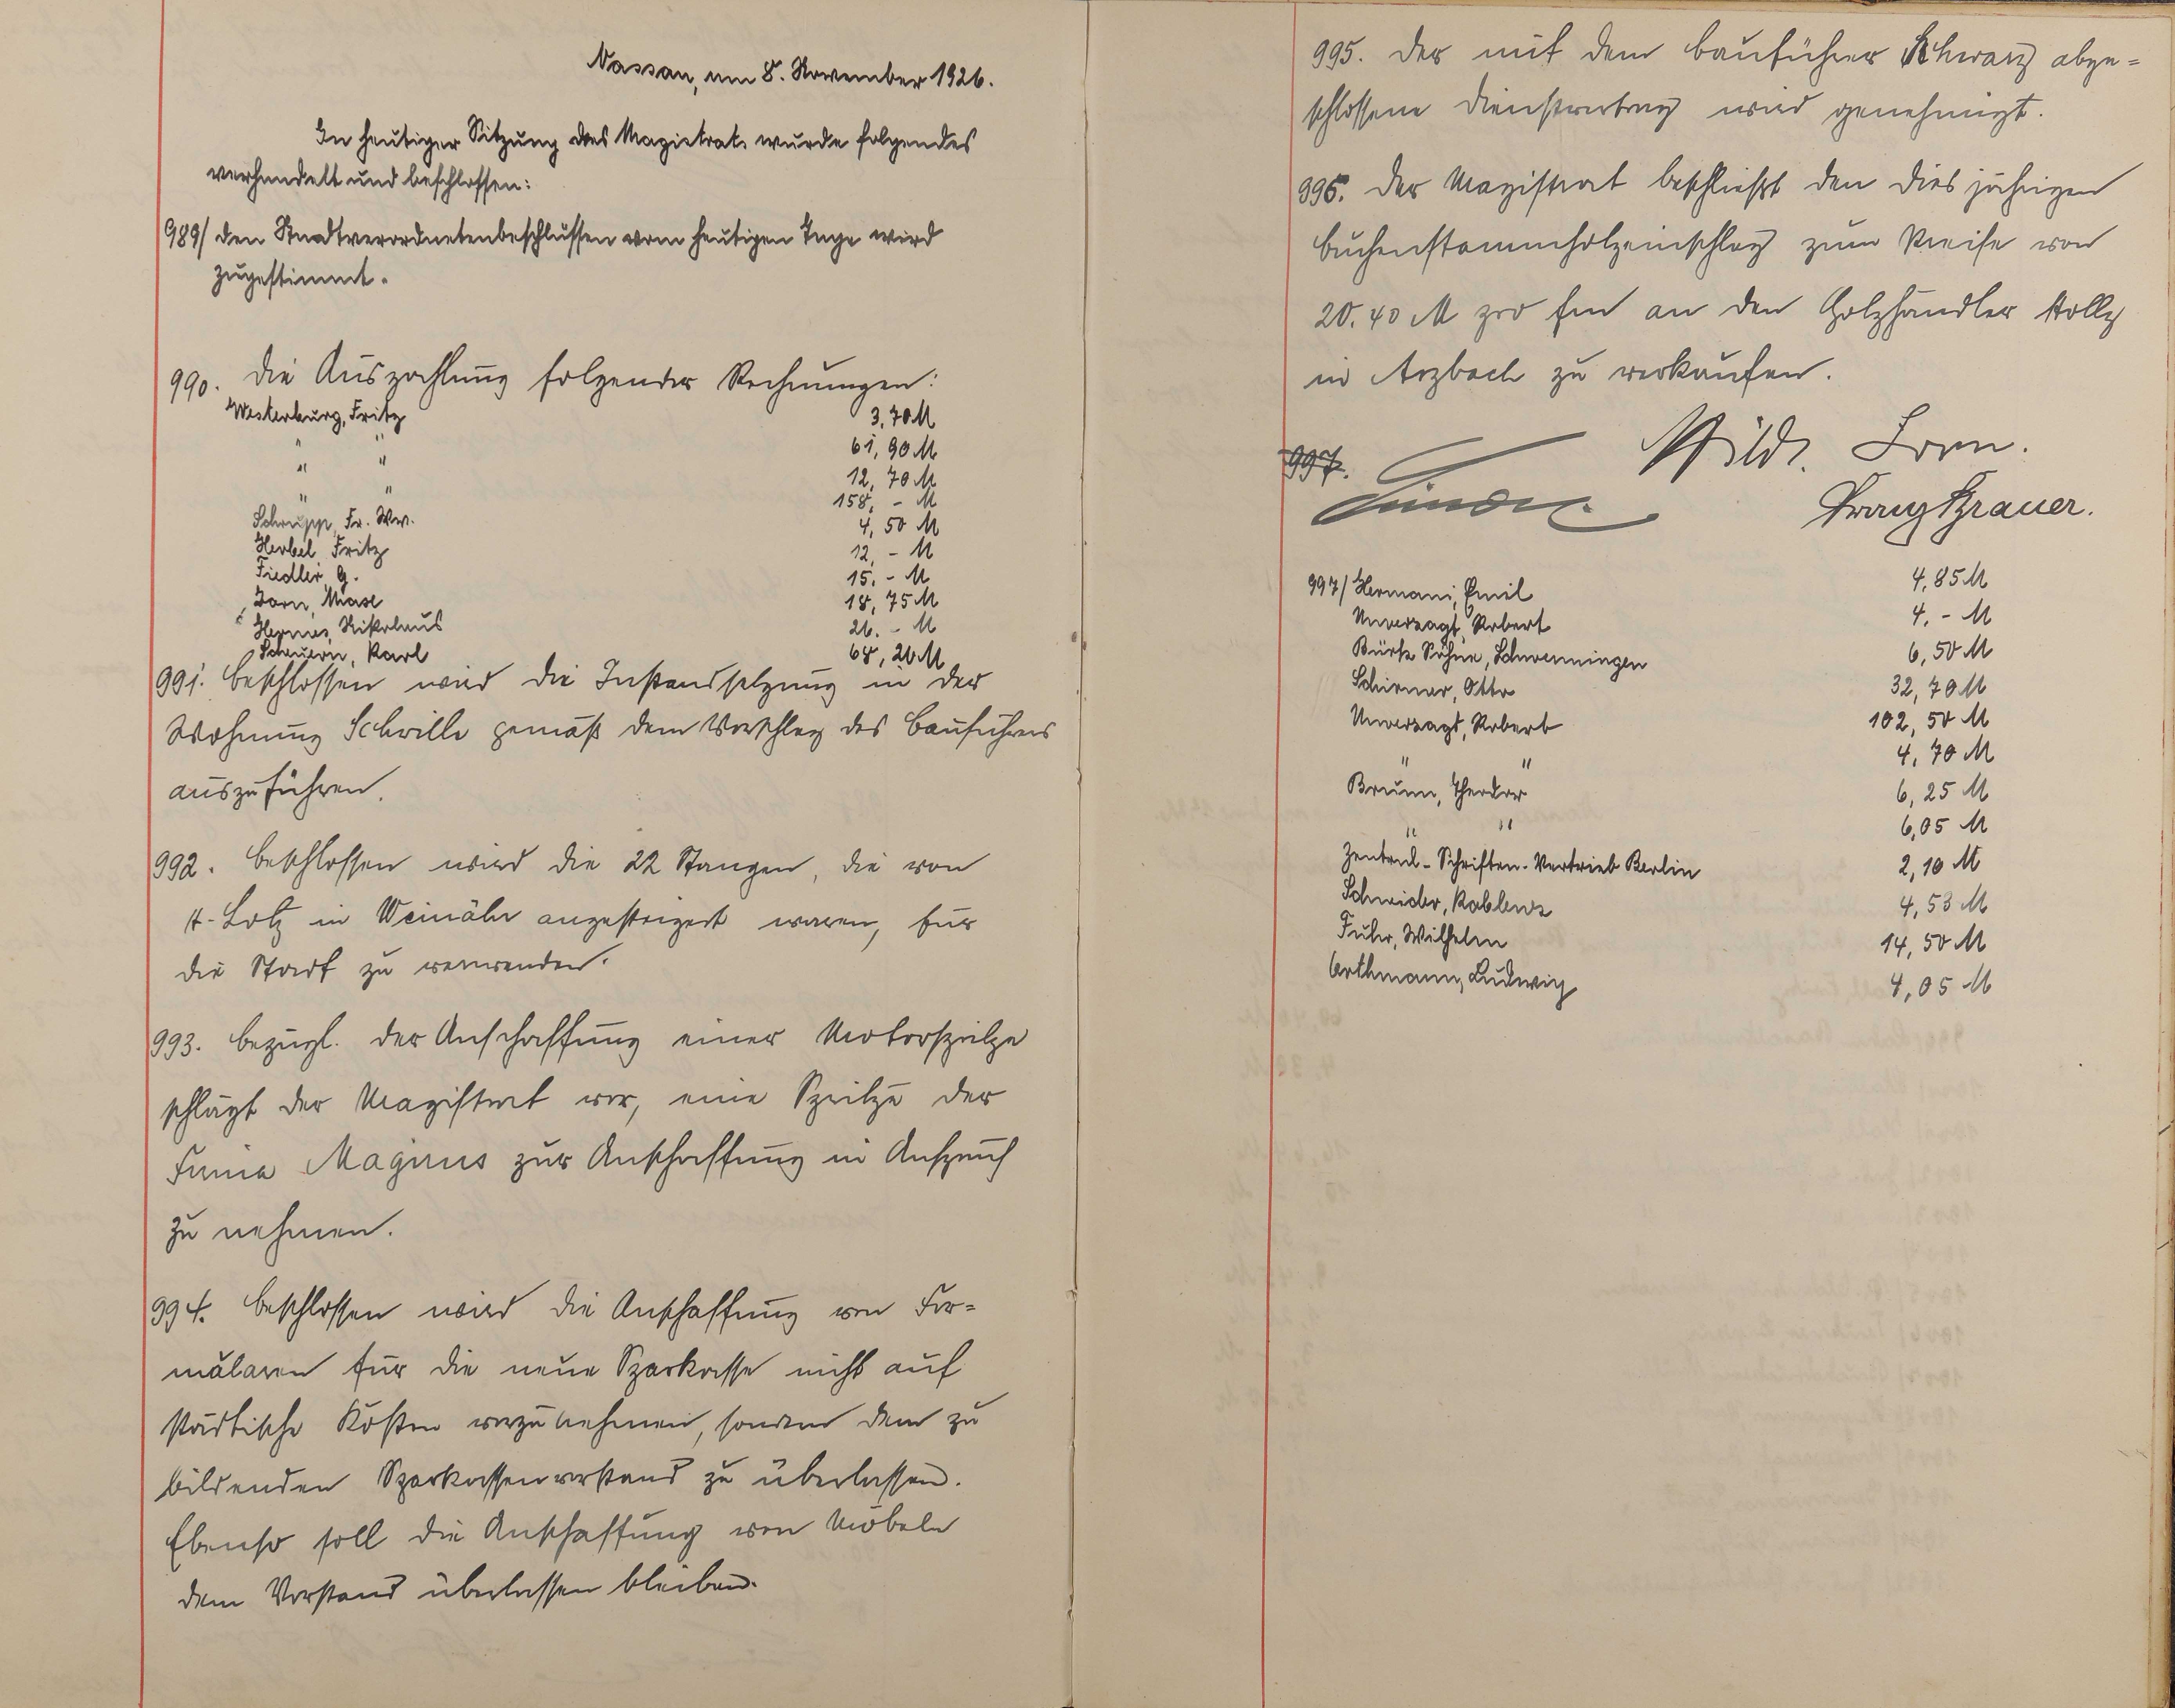 Nassau, am 8. November 1926.
In heutiger Sitzung des Magistrats wurde folgendes
verhandelt und beschlossen:
989/ den Stadtverordnetenbeschlüssen vom heutigen Tage wird
zugestimmt.
990. die Auszahlung folgender Rechnungen:
Westerburg, Fritz 3,70 M
" " 61,90 M
" " 12,70 M
" " 158,- M
Schrupp, Fr. Ww. 4,50 M
Herbel Fritz 12,- M
Fiedler, G. 15.- M
Zorn, 18,75 M
Hermes, Nikolaus 26.- M
Scheuern, Karl 68,20 M
991. beschlossen wird die Instandsetzung in der
Wohnung Schrille gemäß dem Vorschlag des Bauführers
auszuführen.
992. beschlossen wird die 22 Stangen, die von
A. Lotz in Weinähr angesteigert waren, für
die Stadt zu verwenden.
993. bezügl. der Anschaffung einer Motorspritze
schlägt der Magistrat vor, eine Spritze der
Firma Magirus zur Anschaffung in Anspruch
zu nehmen.
994. beschlossen wird die Anschaffung von For=
mularen für die neue Sparkasse nicht auf
städtische Kosten vorzunehmen, sondern dem zu
bildenden Sparkassenvorstand zu überlassen.
Ebenso soll die Anschaffung von Möbeln
dem Vorstand überlassen bleiben.
995. der mit dem Bauführer Schwarz abge=
schlossene Dienstvertrag wird genehmigt.
996. der Magistrat beschließt den diesjährigen
Buchenstammholzeinschlag zum Preise von
20.40 M pro fm an den Holzhändler Stolly
in Arzbach zu verkaufen.
997.
Franz Brauer.
997/ Hermani, Emil 4,85 M
Unverzagt, Robert 4,- M
Bürk Söhne, Schwenningen 6,50 M
Schirmer, Otto 32,70 M
Unverzagt, Robert 102,50 M
" " 4,70 M
Bruun, Theodor 6,25 M
" " 6,05 M
Zentral-Schriften-Vertrieb Berlin 2,10 M
Schneider, Koblenz 4,53 M
Fuhr, Wilhelm 14,50 M
Orthmann, Ludwig 4,05 M